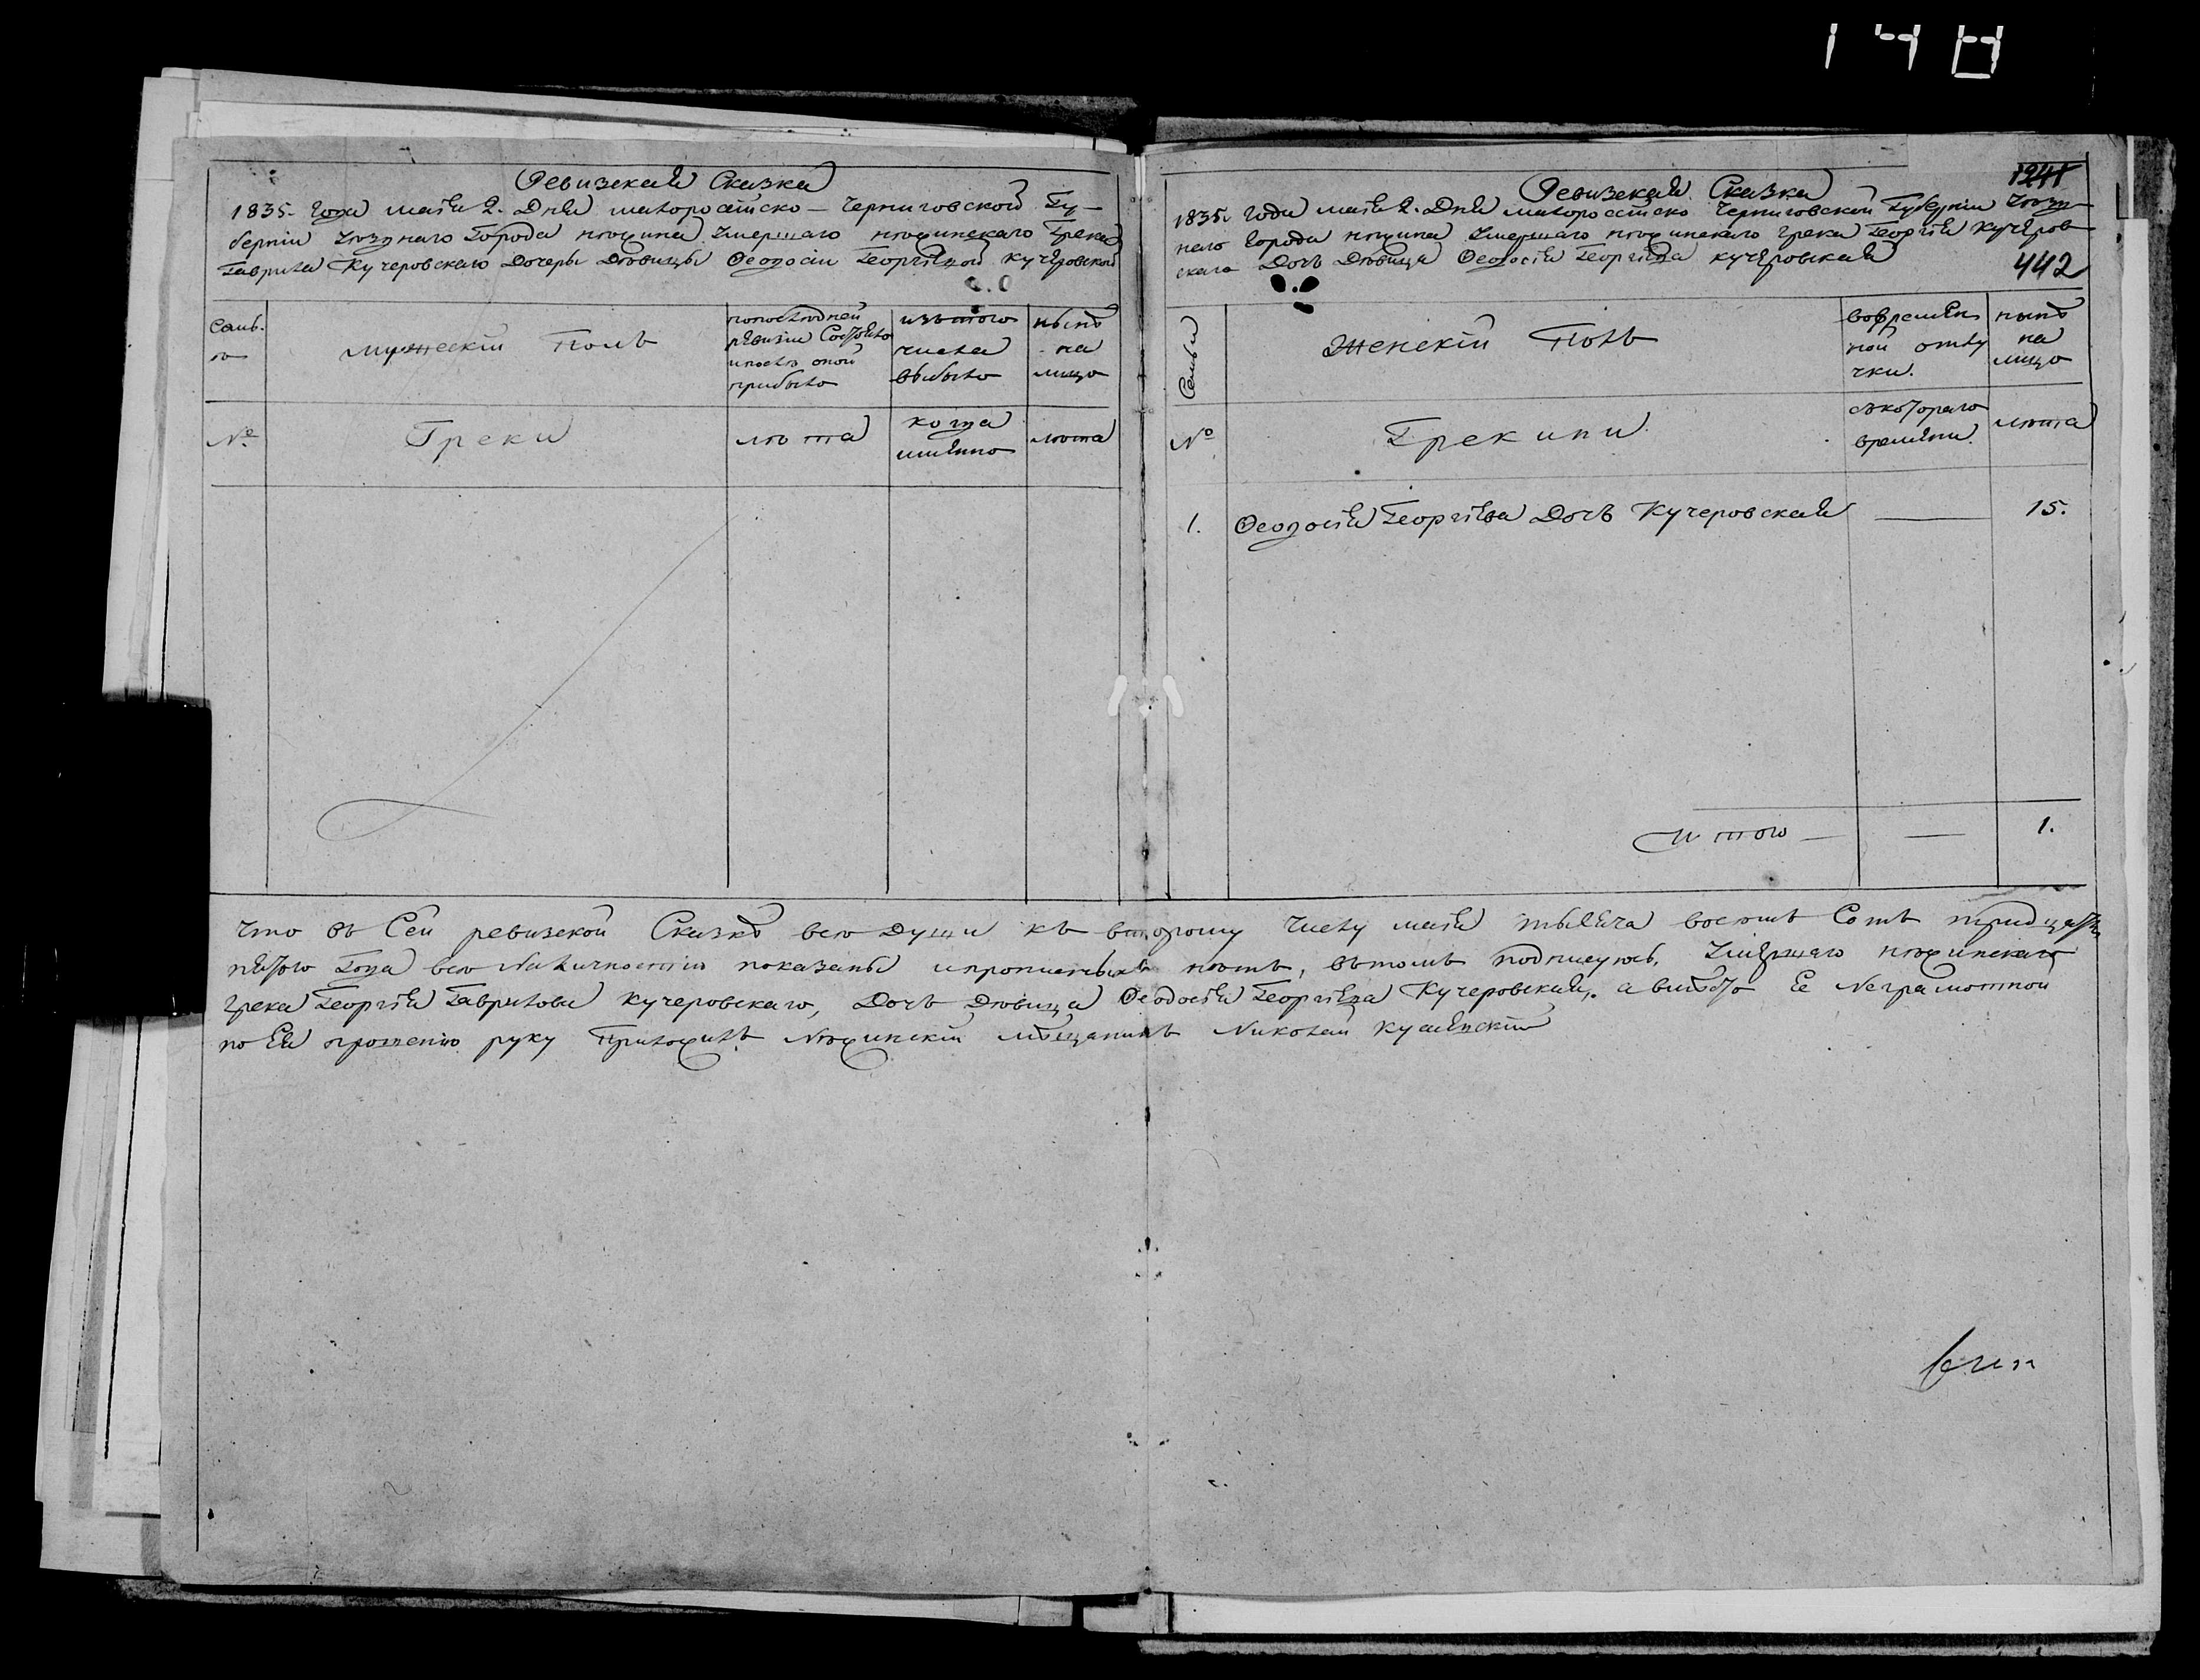 178
Ревизская Сказка
1835 года маія 2. Дня малоросійско-Черниговской Гу-
берніи уезднаго Города нѣжина умершаго нѣжинскаго Грека
Гаврила Кучеровскаго Дочеры Дѣвицы Ѳеодосіи Георгіевой Кучеровской
Семь.
я
мужескій Полъ
попослѣдней
ревизіи Состояло
ипослѣ оной
прибыло
изътого
числа
выбыло
нынѣ
на
лицо
№
Греки
лѣта
когда
имянно
лѣта
1241
Ревизская Сказка
1835. года маія 2. Дня малоросійско Черниговской Губерніи уезд-
наго города нѣжина умершаго нѣжинскаго грека Георгія Кучеров
скаго Дочь Дѣвица Ѳеодосія Георгіева кучеровская
442
Семья
Женскій Полъ
вовремен
ной отлу
чки.
нынѣ
на
лицо
№
Грекини
съкотораго
времени.
лѣта
1. Ѳеодосія Георгіева Дочь Кучеровская — 15.
Итого — — 1.
Что въ Сей ревизской Сказкѣ всѣ Души къ второму числу маія тысяча восемъ Сотъ тридцать
пятого Года всѣ Наличностію показаны ипрописныхъ нѣтъ, вътомъ подписуюсь, умершаго нѣжинскаго
грека Георгія Гаврилова Кучеровскаго, Дочь Дѣвица Ѳеодосія Георгіева Кучеровская, авмѣсто Ее Неграмотной
по Ея прошенію руку Приложилъ Нѣжинскій мѣщанинъ Николай